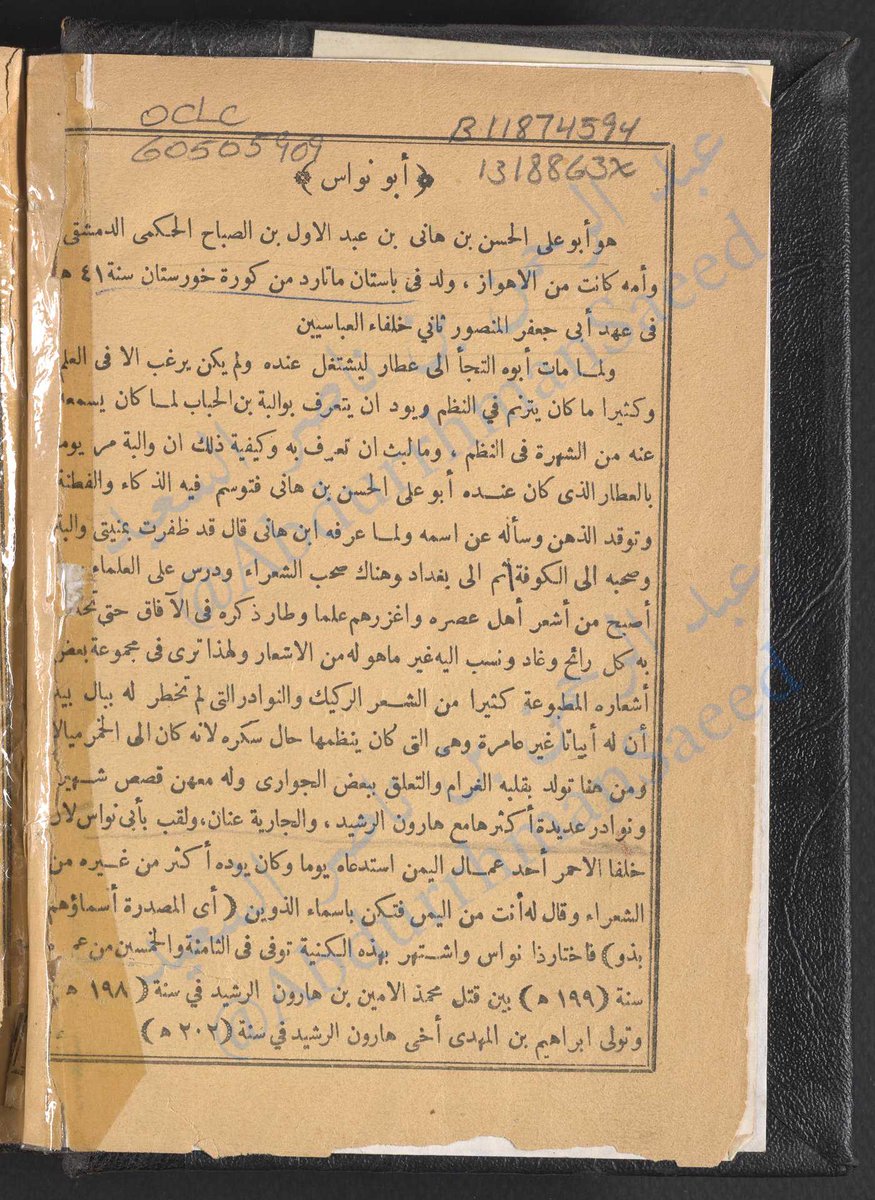 OCLC
60505909
B11874594
1318863x
﴿ أبو نواس ﴾
هو أبو على الحسن بن هانى بن عبد الاول بن الصباح الحكمى الدمشقى
وأمه كانت من الاهواز ، ولد فى باستان ماتارد من كورة خورستان سنة ٤١ هـ
فى عهد أبى جعفر المنصور ثاني خلفاء العباسيين
ولما مات أبوه التجأ الى عطار ليشتغل عنده ولم يكن يرغب الا فى العلم
وكثيرا ما كان يترنم في النظم ويود ان يتعرف بوالبة بن الحباب لما كان يسمعه
عنه من الشهرة فى النظم ، وما لبث ان تعرف به وكيفية ذلك ان والبة مر يوما
بالعطار الذى كان عنده أبو على الحسن بن هانى فتوسم فيه الذكاء والفطنة
وتوقد الذهن وسأله عن اسمه ولما عرفه ابن هانى قال قد ظفرت بمنيتى والبة
وصحبه الى الكوفة ثم الى بغداد وهناك صحب الشعراء ودرس على العلماء
أصبح من أشعر أهل عصره واغزرهم علما وطار ذكره فى الآفاق حتى
به كل رائح وغاد ونسب اليه غير ماهو له من الاشعار ولهذا ترى فى مجموعة بعض
أشعاره المطبوعة كثيرا من الشعر الركيك والنوادر التى لم تخطر له ببال بيد
أن له أبياتا غير عامرة وهى التى كان ينظمها حال سكره لانه كان الى الخمر ميالا
ومن هفا تولد بقلبه الغرام والتعلق ببعض الجوارى وله معهن قصص شهيرة
ونوادر عديدة أكثرها مع هارون الرشيد ، والجارية عنان، ولقب بأبى نواس لان
خلفا الاحمر أحد عمال اليمن استدعاه يوما وكان يوده أكثر من غيره من
الشعراء وقال له أنت من اليمن فتكن باسماء الذوين ( أى المصدرة أسماؤهم
بذو) فاختار ذا نواس واشتهر بهذه الكنية توفى فى الثامنة والخمسين من عمره
سنة (١٩٩ هـ) بين قتل محمد الامين بن هارون الرشيد في سنة ( ١٩٨ هـ)
وتولى ابراهيم بن المهدى أخى هارون الرشيد في سنة (٢٠٢ هـ)
عبد الرحمن بن ناصر السعيد
@AbdurrhmanSaeed
عبد الرحمن بن ناصر السعيد
@AbdurrhmanSaeed